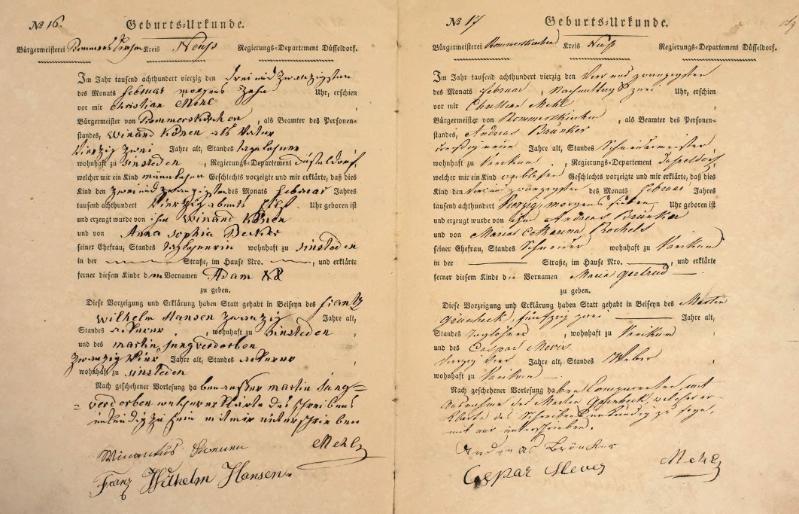 No 16.
Geburts-Urkunde.
Bürgermeisterei Rommerskirchen Kreis Neuß Regierungs-Departement Düsseldorf.
Im Jahr tausend achthundert vierzig den drei und zwanzigsten
des Monats Februar morgens zehn Uhr, erschien
vor mir Christian Mehl
Bürgermeister von Rommerskirchen, als Beamter des Personen-
standes, Winand als Vater
vierzig zwei Jahre alt, Standes Taglöhner
wohnhaft zu Sinsteden, Regierungs-Departement Düsseldorf
welcher mir ein Kind männlichen Geschlechts vorzeigte und mir erklärte, daß dies
Kind den zwei und zwanzigsten des Monats Februar Jahres
tausend achthundert vierzig abents Uhr geboren ist
und erzeugt wurde von ihm Winand
und von Anna Sophia Decker
seiner Ehefrau, Standes Taglöhnerin wohnhaft zu Sinsteden
in der Straße, im Hause Nro. , und erklärte
ferner diesem Kinde den Vornamen Adam
zu geben.
Diese Vorzeigung und Erklärung haben Statt gehabt in Beiseyn des Frantz
Wilhelm Hansen zwanzig Jahre alt,
Standes Ackerer, wohnhaft zu Sinsteden
und des Martin Jungverdorben
zwanzig vier Jahre alt, Standes Ackerer
wohnhaft zu Sinsteden
Nach geschehener Vorlesung haben außer Martin Jung-
verdorben welcher erklärte des Schreibens
unkundig zu sein mit mir unterschrieben
Winantus
Mehl
Franz Wilhelm Hansen.
No 17
Geburts-Urkunde.
Bürgermeisterei Rommerskirchen Kreis Neuß Regierungs-Departement Düsseldorf.
Im Jahr tausend achthundert vierzig den vier und zwanzigsten
des Monats Februar, Nachmittags zwei Uhr, erschien
vor mir Christian Mehl
Bürgermeister von Rommerskirchen, als Beamter des Personen-
standes, Andreas Brünker
Jahre alt, Standes Schreinermeister
wohnhaft zu, Regierungs-Departement Düsseldorf
welcher mir ein Kind weiblichen Geschlechts vorzeigte und mir erklärte, daß dies
Kind den vier und zwanzigsten des Monats Februar Jahres
tausend achthundert vierzig, morgens sieben Uhr geboren ist
und erzeugt wurde von ihm Andreas Brünker
und von Maria Catharina
seiner Ehefrau, Standes wohnhaft zu
in der Straße, im Hause Nro. , und erklärte
ferner diesem Kinde die Vornamen Maria Gertrud
zu geben.
Diese Vorzeigung und Erklärung haben Statt gehabt in Beiseyn des Martin
fünfzig zwei Jahre alt,
Standes Taglöhner, wohnhaft zu
und des Caspar Mever
Jahre alt, Standes Weber
wohnhaft zu
Nach geschehener Vorlesung haben Comparenten, mit
Ausnahme des Martin, welcher er-
klärte des Schreibens unkundig zu seyn,
mit mir unterschrieben.
Andreas Brünker
Caspar Mever
Mehl